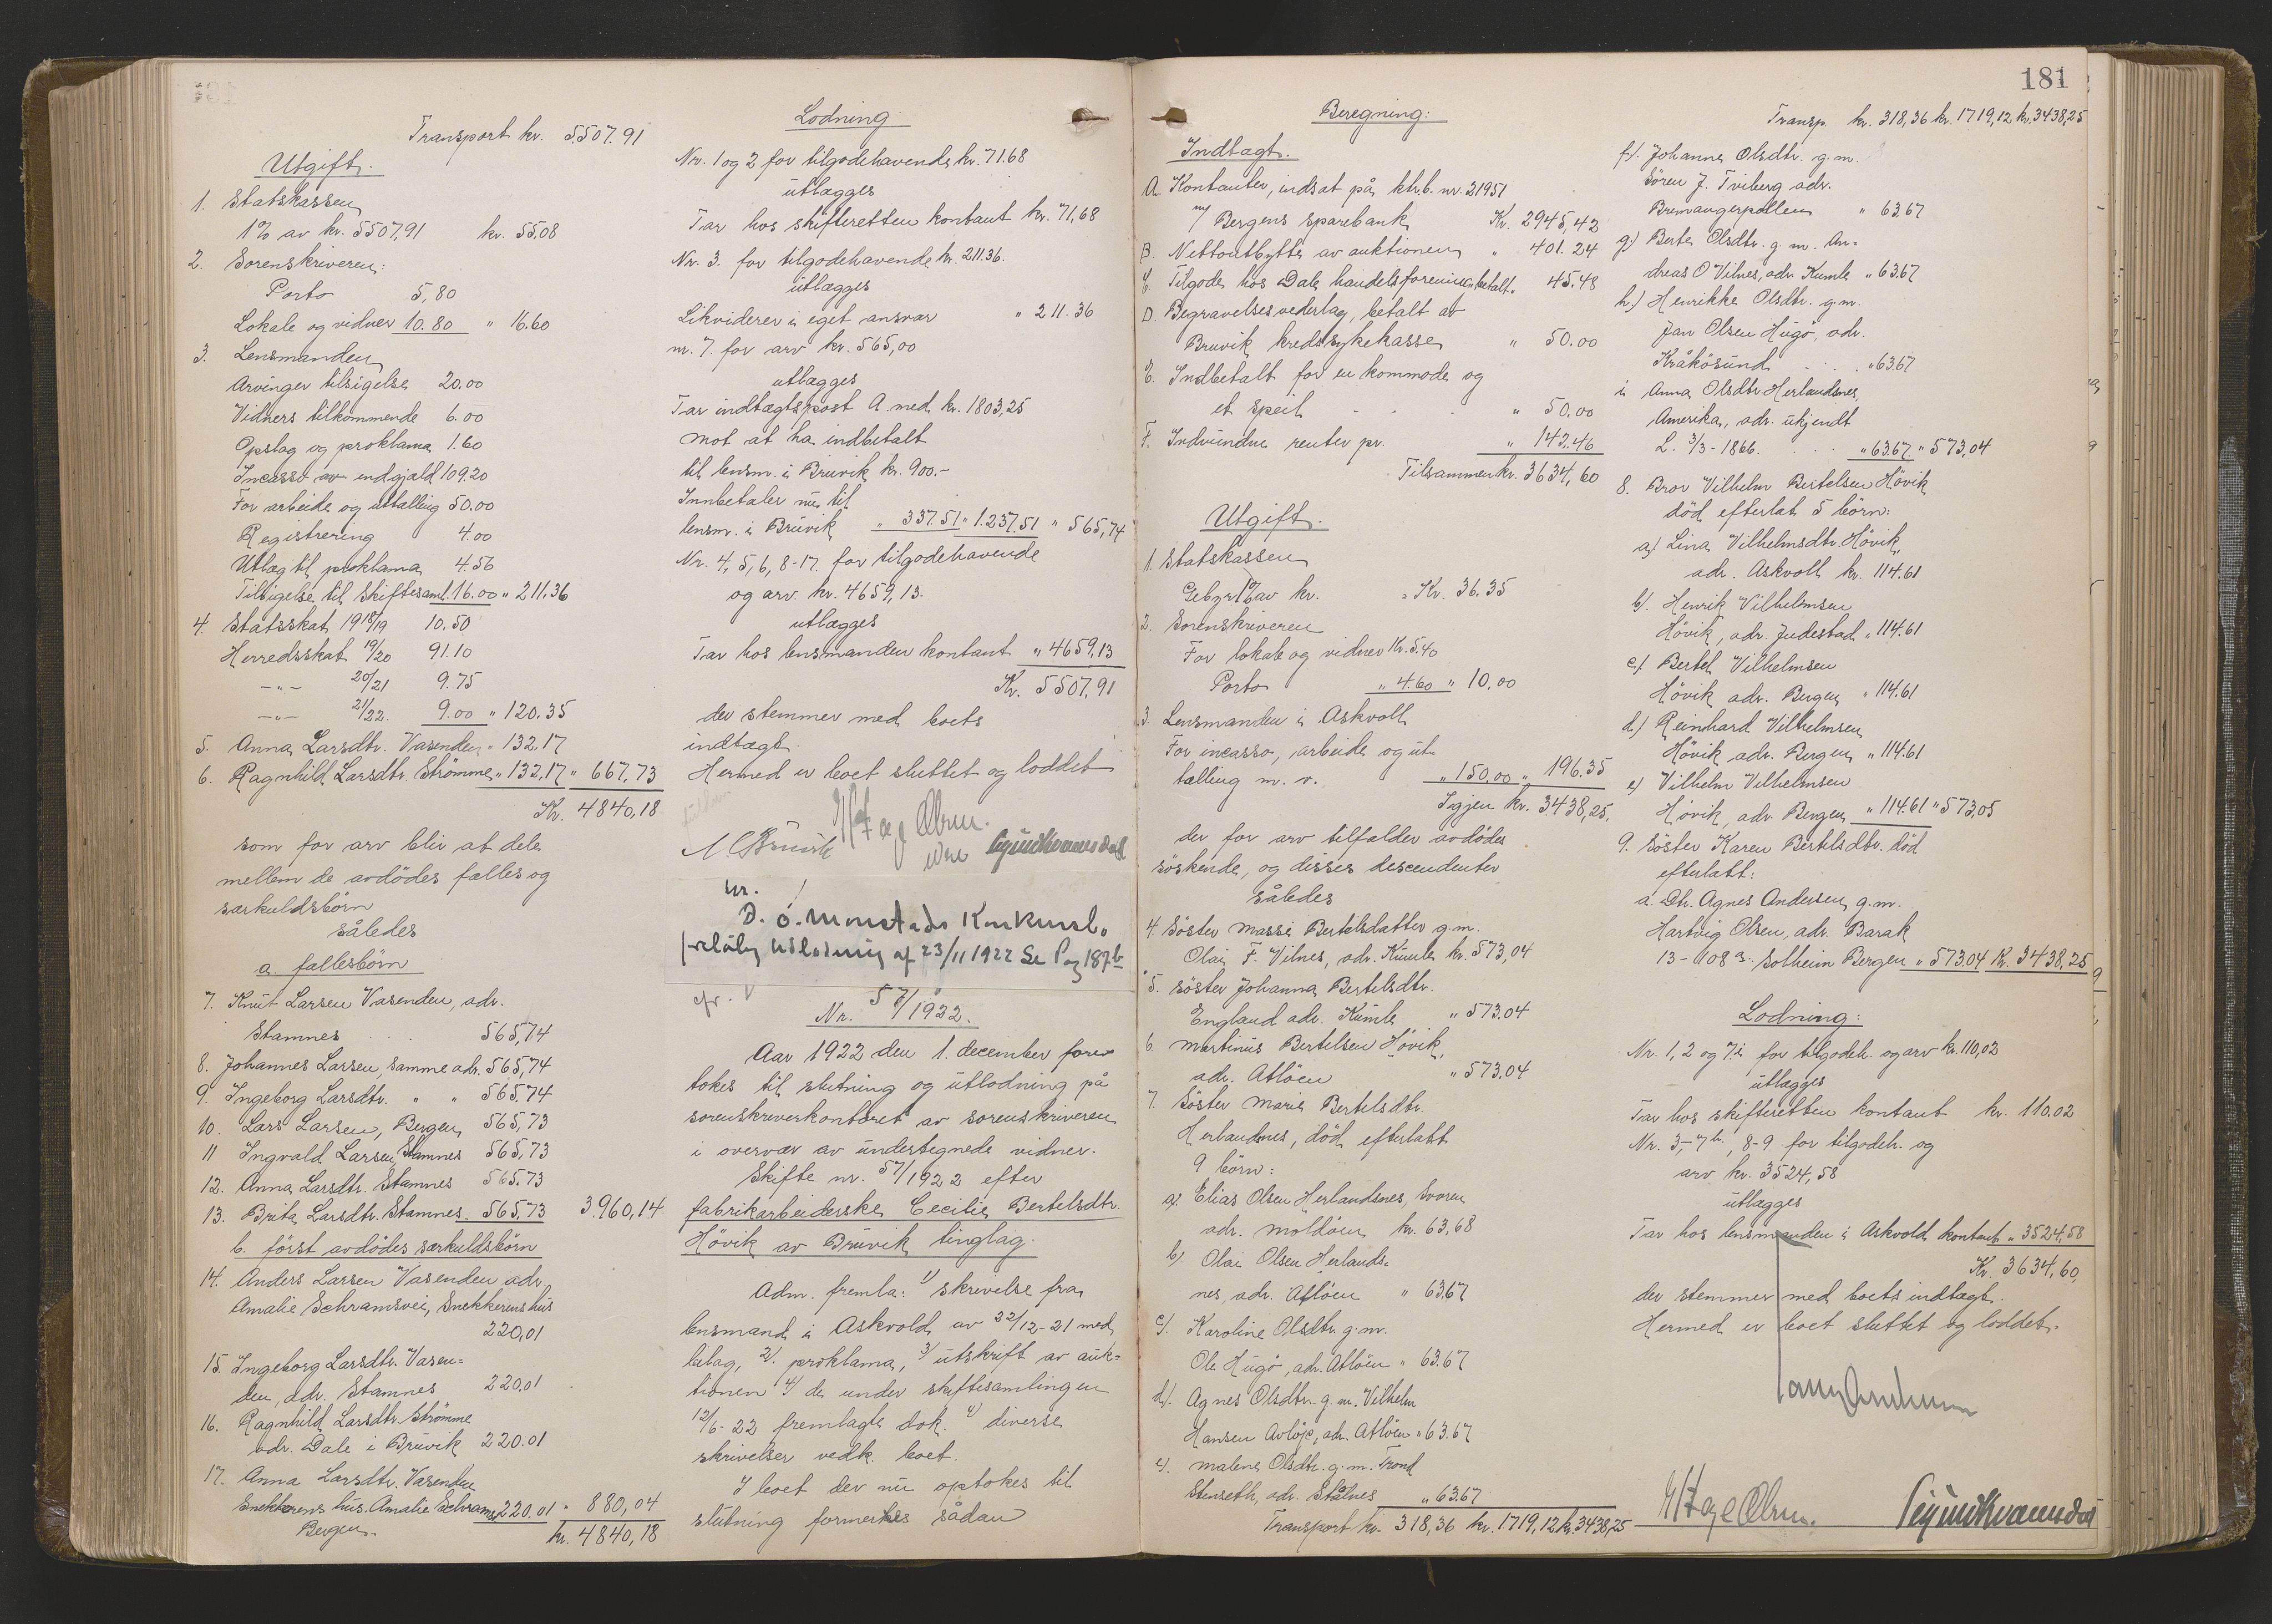 Transport kr. 5507.91
Utgift.
1. Statskassen
1% av kr. 5507,91 kr. 55.08
2. Sorenskriveren:
Porto 5,80
Lokale og vidner 10.80 " 16.60
3. Lensmanden
Arvinger tilsigelse 20.00
Vidners tilkommende 6.00
Opslag og proklama 1.60
Incasso av endgjald 109.20
For arbeide og uttælling 50.00
Registrering 4.00
Utlæg til proklama 4.56
Tilsigelse til skiftesaml. 16.00 " 211.36
4. Statsskat 1918/19 10.50
Herredsskat 19/20 91.10
-"- 20/21 9.75
-"- 21/22. 9.00 " 120.35
5. Anna Larsdtr. Vasenden " 132.17
6. Ragnhild Larsdtr. Strömme " 132,17 " 667,73
Kr. 4840,18
som for arv blir at dele
mellem de avdödes fælles og
særkuldsbörn
således
a. fællesbörn
7. Knut Larsen Vasenden, adr.
Stamnes 565,74
8. Johannes Larsen, samme adr. 565,74
9. Ingeborg Larsdtr. " " 565.74
10. Lars Larsen, Bergen 565,73
11 Ingvald Larsen Stamnes 565,73
12. Anna Larsdtr. Stamnes 565.73
13. Brita Larsdtr. Stamnes 565,73 3960,14
b. först avdödes særkuldsbörn
14. Anders Larsen Vasenden adr.
Amalie Schramsvei, Snekkerens hus
220,01
15. Ingeborg Larsdtr. Vasen=
den, adr. Stamnes 220,01
16. Ragnhild Larsdtr. Strömme
adr. Dale i Bruvik 220.01
17. Anna Larsdtr. Vasenden
Snekkerens hus. Amalie Schramsv. 220.01 " 880,04
Bergen. kr. 4840,18
Lodning
Nr. 1 og 2 for tilgodehavende kr. 71.68
utlægges
Tar hos skifteretten kontant kr. 71,68
Nr. 3. for tilgodehavende kr. 211.36.
utlægges
Likviderer i eget ansvar " 211.36
nr. 7. for arv kr. 565,00
utlægges
Tar indtægtspost A med kr. 1803,25
mot at ha indbetalt
til lensm. i Bruvik kr. 900.-
Innbetaler nu til
lensm. i Bruvik " 337.51 " 1.237.51 " 565,74
Nr. 4, 5, 6, 8-17. for tilgodehavende
og arv kr. 4659,13.
utlægges
Tar hos lensmanden kontant " 4659,13
Kr. 5507,91
der stemmer med boets
indtægt.
Hermed er boet sluttet og loddet
D. O. Monstads Konkursb.
foreløbig Utlodning af 23/11 1922 Se Pag 187b
Nr. 57/1922.
Aar 1922 den 1. december fore=
tokes til slutning og utlodning på
sorenskriverkontoret av sorenskriveren
i overvær av undertegnede vidner.
Skifte nr. 57/1922 efter
fabrikarbeiderske Cecilie Bertelsdtr.
Hövik av Bruvik tinglag.
Adm. fremla: 1/ skrivelse fra
lensmand i Askvold av 22/12-21 med
bilag, 2/. proklama, 3/ utskrift av auk=
tionen 4/ de under skiftesamlingen
12/6-22 fremlagte dok. 4/ diverse
skrivelser vedk. boet.
I boet der nu optokes til
slutning formerkes sådan
181
Beregning:
Indtægt.
A. Kontanter, indsat på ktrb. nr. 21951
m/ Bergens sparebank Kr. 2945,42
B. Nettoutbytte av auktionen " 401.24
C. Tilgode hos Dale handelsforening betalt " 45.48
D. Begravelsesvederlag, betalt av
Bruvik kredssykekasse " 50.00
E. Indbetalt for en kommode og
et speil " 50,00
F. Indvundne renter pr. " 142.46
Tilsammen kr. 3634,60
Utgift.
1. Statskassen
Gebyr 1% av kr. = Kr. 36.35
2. Sorenskriveren
For lokale og vidner Kr. 5.40
Porto " 4.60 " 10,00
3. Lensmanden i Askvoll
For incasso, arbeide og ut
tælling m. v. " 150,00 " 196.35
Igjen kr. 3438,25.
der for arv tilfalder avdödes
söskende, og disses descendenter
således
4. Söster Massi Bertelsdatter g.m.
Olai F. Vilnes, adr. Kumle kr. 573,04
5. Söster Johanna Bertelsdtr.
England adr. Kumle " 573.04
6. Martinus Bertelsen Hövik,
adr. Atlöen " 573.04
7. Söster Marie Bertelsdtr.
Herlandnes, död efterlatt
9 börn:
a). Elias Olsen Herlandsnes, Svoren
adr. Moldöen kr. 63,68
b) Olai Olsen Herlands=
nes, adr. Atlöen " 63.67
c). Karoline Olsdtr. g.m.
Ole Hugö, adr. Atlöen " 63.67
d). Agnes Olsdtr. g.m. Vilhelm
Hansen Avlöje, adr. Atlöen " 63.67
e). Malene Olsdtr. g.m. Trond
Stenseth, adr. Stålnes " 63.67
Transport kr. 318,36 kr. 1719,12 kr. 3438,25
Transp. kr. 318,36 kr. 1719,12 kr. 3438,25
f). Johanne Olsdtr. g.m.
Sören J. Tviberg adr.
Bremangerpollen " 63.67
g.) Berte Olsdtr. g.m. An=
dreas O Vilnes, adr. Kumle " 63.67
h.) Henrikke Olsdtr. g.m.
Jan Olsen Hugö, adr.
Kråkösund " 63.67
i. Anna Olsdtr. Herlandsnes
Amerika, adr. ukjendt
L. 3/3-1866. " 63.67 " 573,04
8. Bror Vilhelm Bertelsen Hövik
död efterlat 5 börn:
a) Lina Vilhelmsdtr. Hövik,
adr. Askvoll kr. 114.61
b). Henrik Vilhelmsen
Hövik, adr. Judestad " 114.61
c) Bertel Vilhelmsen
Hövik adr. Bergen " 114.61
d.) Reinhard Vilhelmsen
Hövik adr. Bergen " 114.61
e) Vilhelm Vilhelmsen
Hövik, adr. Bergen " 114.61 " 573,05
9. Söster Karen Bertelsdtr. död
efterlatt:
a. Dtr. Agnes Andersen g.m.
Hartvig Olsen, adr. Barak
13-108 a. Solheim Bergen " 573.04 Kr. 3438,25
Lodning:
Nr. 1, 2 og 7i for tilgodeh. og arv kr. 110,02
utlægges
Tar hos skifteretten kontant kr. 110.02
Nr. 3,-7h, 8-9 for tilgodeh. og
arv kr. 3524,58
utlægges
Tar hos lensmanden i Askvold kontant " 3524,58
Kr. 3634,60
der stemmer med boets indtægt.
Hermed er boet sluttet og loddet.